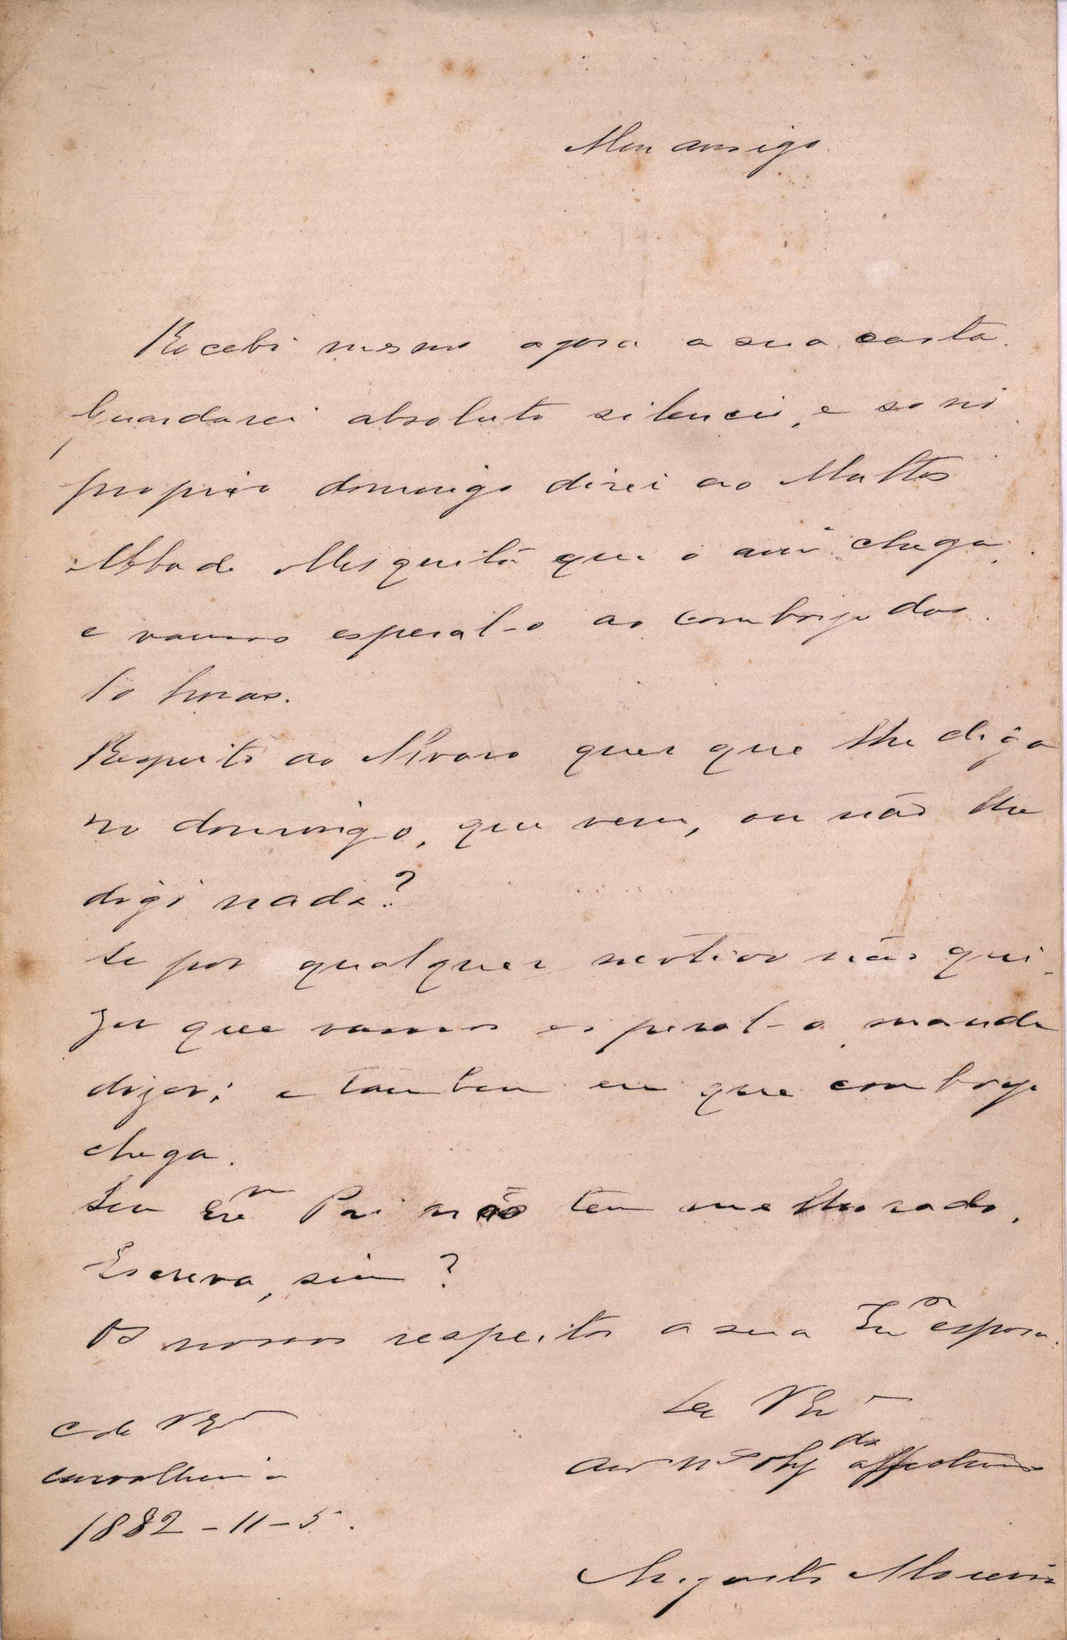 Meu amigo.
Recebi mesmo agora a sua carta.
Guardarei absoluto silencio, e só no
proprio domingo direi ao Mattos
Abbade Mesquita que o am.º chega,
e vamos esperal-o ao comboyo das
10 horas.
Respeito ao Alvaro quer que lhe diga
no domingo, que vem, ou não lhe
digo nada?
Se por qualquer motivo não qui-
zer que vamos esperal-o mande
dizer; e tambem em que comboyo
chega.
Seu Ex.mo Pai não tem melhorado.
Escreva, sim?
Os nossos respeitos a sua Ex.ma esposa.
De V Ex.ª
C. de V Ex.ª
Carvalheira
am.º obg.do affectuoso
1882-11-5.
Augusto Moreira